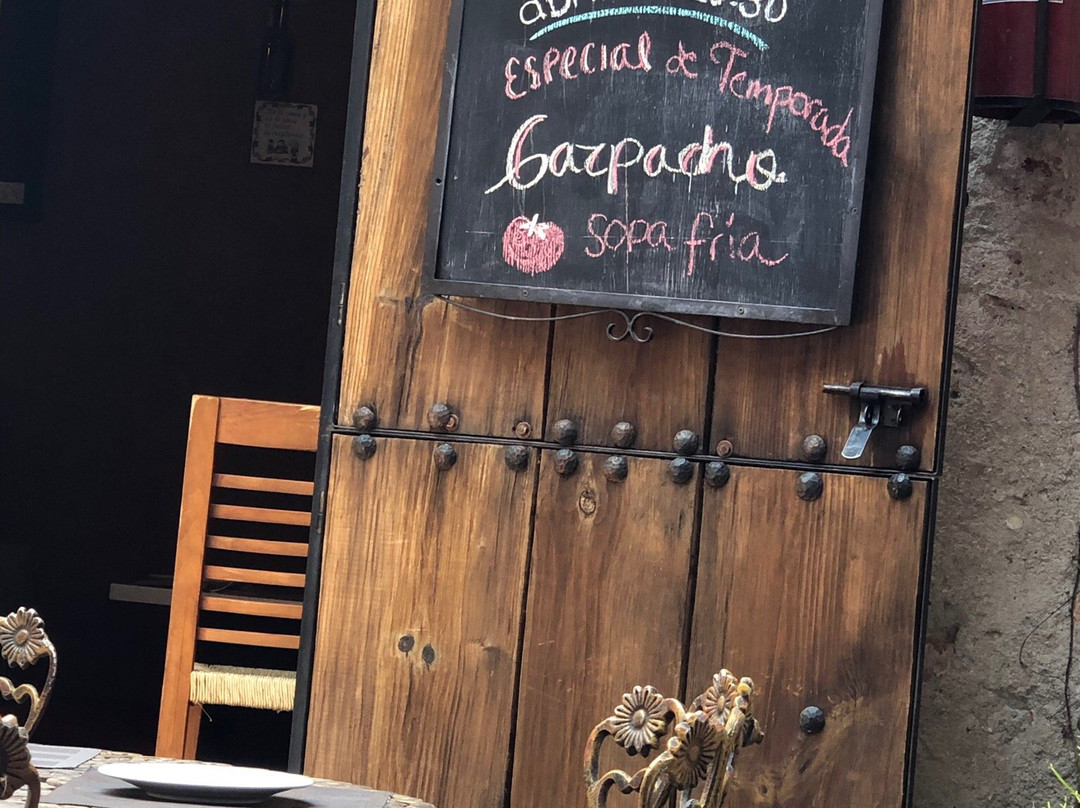 Especial de Temporada
Gazpacho
sopa fría